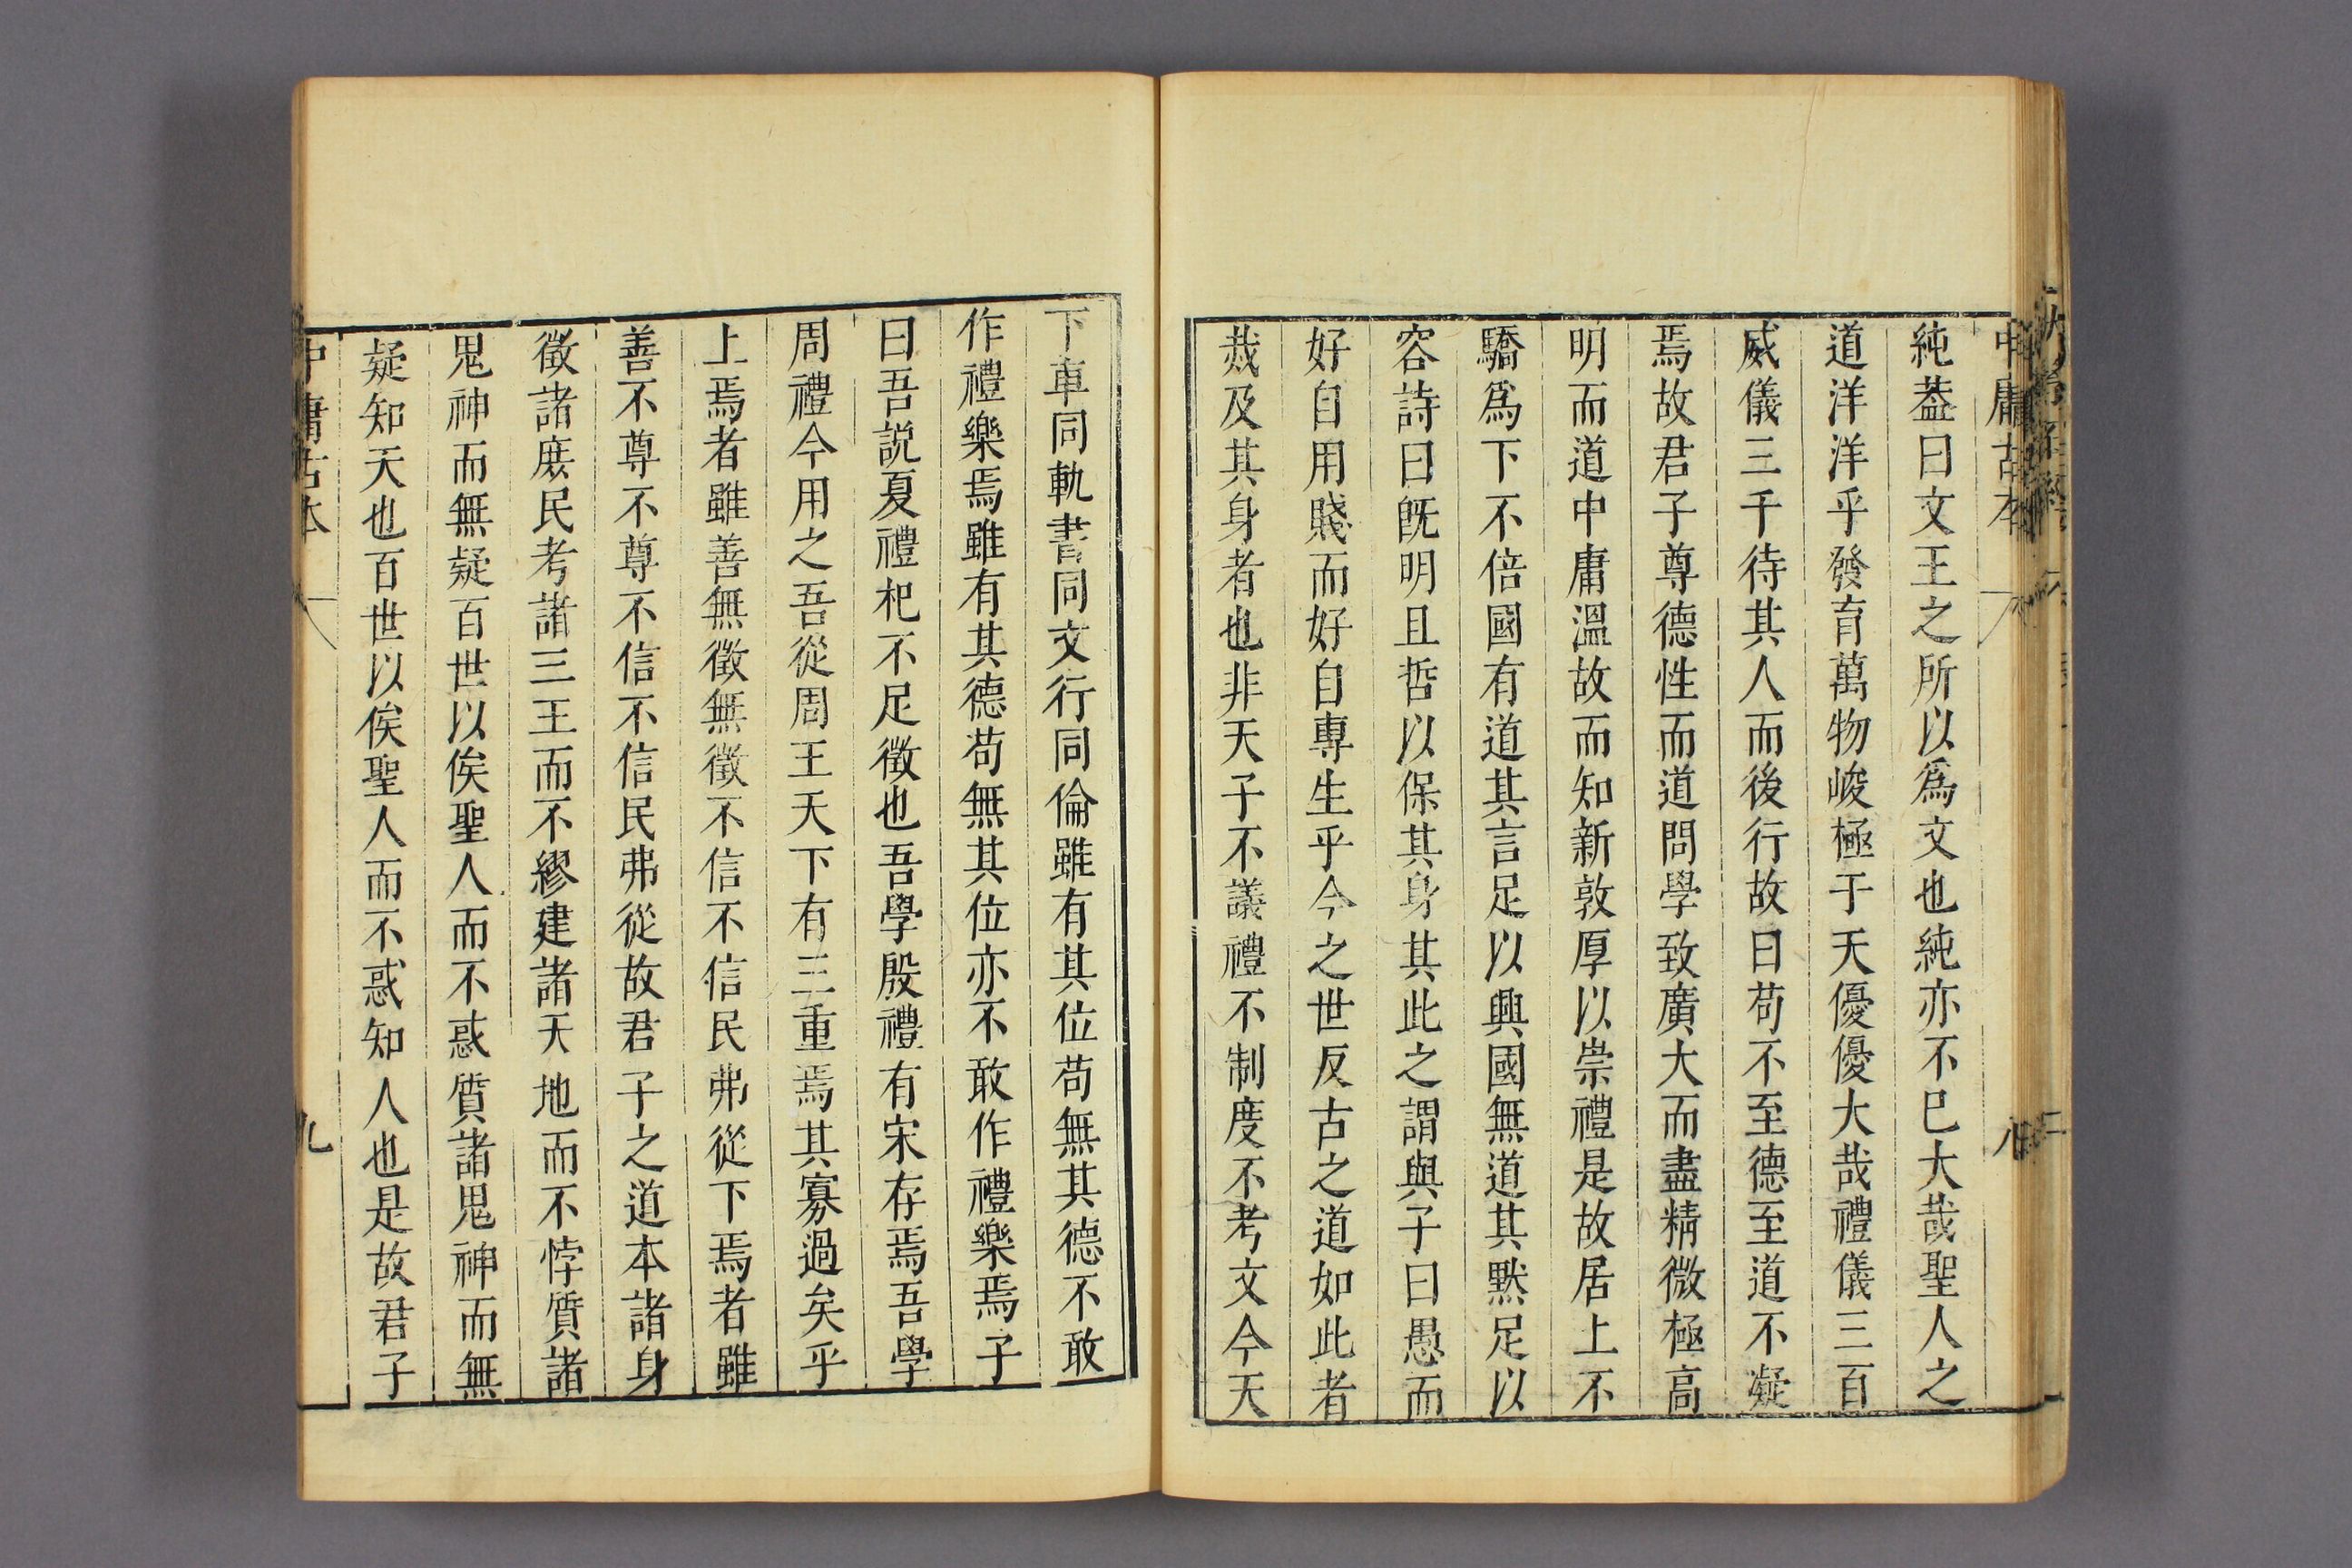 中庸古本
八
純葢曰文王之所以爲文也純亦不巳大哉聖人之
道洋洋乎發育萬物峻極于天優優大哉禮儀三百
威儀三千待其人而後行故曰苟不至德至道不凝
焉故君子尊德性而道問學致廣大而盡精微極高
明而道中庸溫故而知新敦厚以崇禮是故居上不
驕爲下不倍國有道其言足以興國無道其黙足以
容詩曰旣明且哲以保其身其此之謂與子曰愚而
好自用賤而好自專生乎今之世反古之道如此者
烖及其身者也非天子不議禮不制度不考文今天
下車同軌書同文行同倫雖有其位苟無其德不敢
作禮樂焉雖有其德苟無其位亦不敢作禮樂焉子
曰吾説夏禮杞不足徵也吾學殷禮有宋存焉吾學
周禮今用之吾從周王天下有三重焉其寡過矣乎
上焉者雖善無徵無徵不信不信民弗從下焉者雖
善不尊不尊不信不信民弗從故君子之道本諸身
徵諸庶民考諸三王而不繆建諸天地而不悖質諸
鬼神而無疑百世以俟聖人而不惑質諸鬼神而無
疑知天也百世以俟聖人而不惑知人也是故君子
中庸古本
九